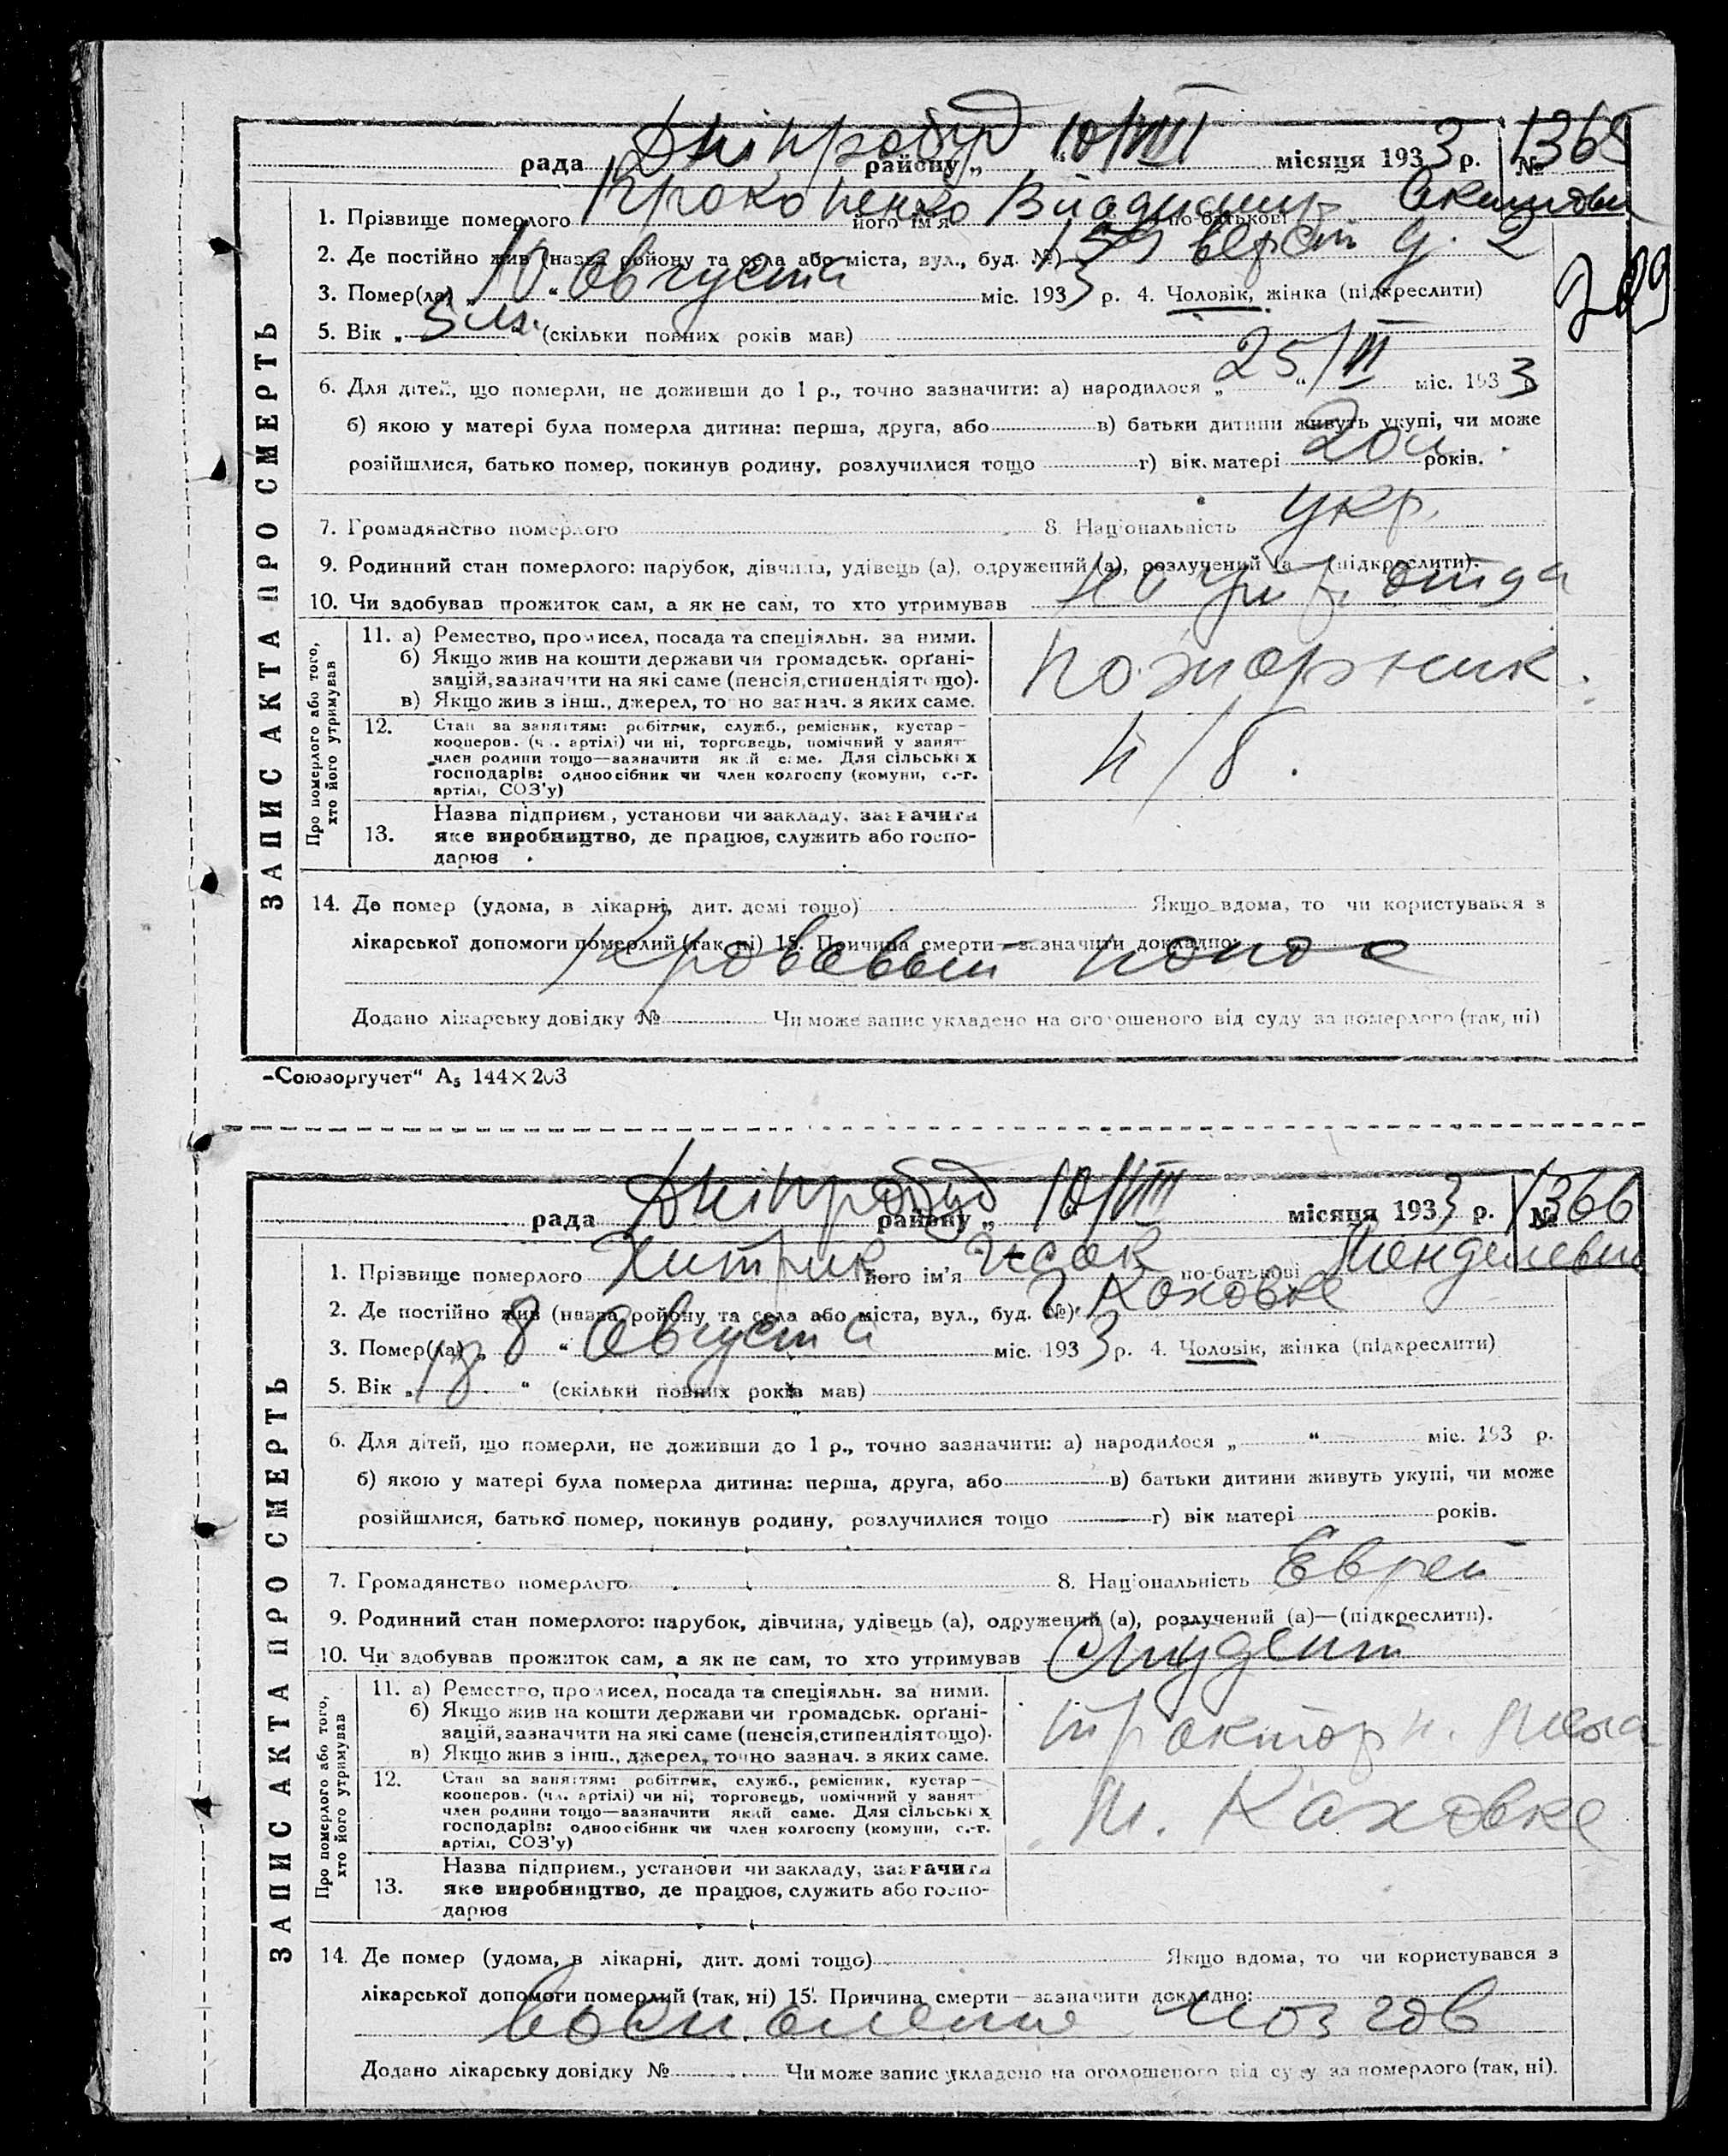 Дніпробуд 10/VIII
рада районну „ місяця 1933 р. № 1365
1. Прізвище померлого Прокопенко його ім'я Владимир по-батькові Акимович
2. Де постійно жив (назва ройону та села або міста, вул., буд. №) верст д. 2
3. Помер(ла) „10“ августа міс. 1933 р. 4. Чоловік, жінка (підкреслити)
5. Вік „5 м. (скільки повних років мав)
6. Для дітей, що померли, не доживши до 1 р., точно зазначити: а) народилося „25/II міс. 1933
б) якою у матері була померла дитина: перша, друга, або в) батьки дитини живуть укупі, чи може
розійшлися, батько помер, покинув родину, розлучилися тощо г) вік матері 20 л років.
7. Громадянство померлого 8. Національність укр.
9. Родинний стан померлого: парубок, дівчина, удівець (а), одружений (а), розлучений (а (підкреслити).
10. Чи здобував прожиток сам, а як не сам, то хто утримував на ужд. отца
ЗАПИС АКТА ПРО СМЕРТЬ
Про померлого або того, хто його утримував
11. а) Ремество, промисел, посада та спеціяльн. за ними.
б) Якщо жив на кошти держави чи громадськ. орґані-
зацій, зазначити на які саме (пенсія, стипендія тощо).
в) Якщо жив з інш., джерел, точно зазнач. з яких саме.
пожарник
12. Стан за заняттям: робітник, служб., ремісник, кустар—
кооперов. (чл. артілі) чи ні, торговець, помічний у занят
член родини тощо—зазначити який саме. Для сільських
господарів: одноосібник чи член колгоспу (комуни, с.-г.
артілі, СОЗ'у)
13. Назва підприєм., установи чи закладу, зазначити
яке виробництво, де працює, служить або госпо-
дарює
14. Де помер (удома, в лікарні, дит. домі тощо) Якщо вдома, то чи користувався з
лікарської допомоги померлий (так, ні) 15. Причина смерти—зазначити докладно:
Кровавый понос
Додано лікарську довідку № Чи може запис укладено на оголошеного від суду за померлого (так, ні)
„Союзоргучет“ А5 144×203
Дніпробуд 10/VIII
рада району „ місяця 1933 р. № 1366
1. Прізвище померлого Хитрик його ім'я Исак по-батькові Менделевич
2. Де постійно жив (назва ройону та села або міста, вул., буд. №) г Каховке
3. Помер(ла) „8“ августа міс. 1933 р. 4. Чоловік, жінка (підкреслити)
5. Вік „18“ (скільки повних років мав)
6. Для дітей, що померли, не доживши до 1 р., точно зазначити: а) народилося „ “ міс. 193 р.
б) якою у матері була померла дитина: перша, друга, або в) батьки дитини живуть укупі, чи може
розійшлися, батько помер, покинув родину, розлучилися тощо г) вік матері років.
7. Громадянство померлого 8. Національність Еврей
9. Родинний стан померлого: парубок, дівчина, удівець (а), одружений (а), розлучений (а)—(підкреслити).
10. Чи здобував прожиток сам, а як не сам, то хто утримував Студент
ЗАПИС АКТА ПРО СМЕРТЬ
Про померлого або того, хто його утримував
11. а) Ремество, промисел, посада та спеціяльн. за ними.
б) Якщо жив на кошти держави чи громадськ. орґані-
зацій, зазначити на які саме (пенсія, стипендія тощо).
в) Якщо жив з інш., джерел, точно зазнач. з яких саме.
трактор
12. Стан за заняттям: робітник, служб., ремісник, кустар—
кооперов. (чл. артілі) чи ні, торговець, помічний у занят
член родини тощо—зазначити який саме. Для сільських
господарів: одноосібник чи член колгоспу (комуни, с.-г.
артілі, СОЗ'у)
М. Каховке
13. Назва підприєм., установи чи закладу, зазначити
яке виробництво, де працює, служить або госпо-
дарює
14. Де помер (удома, в лікарні, дит. домі тощо) Якщо вдома, то чи користувався з
лікарської допомоги померлий (так, ні) 15. Причина смерти—зазначити докладно:
Воспаление мозгов
Додано лікарську довідку № Чи може запис укладено на оголошеного від суду за померлого (так, ні).